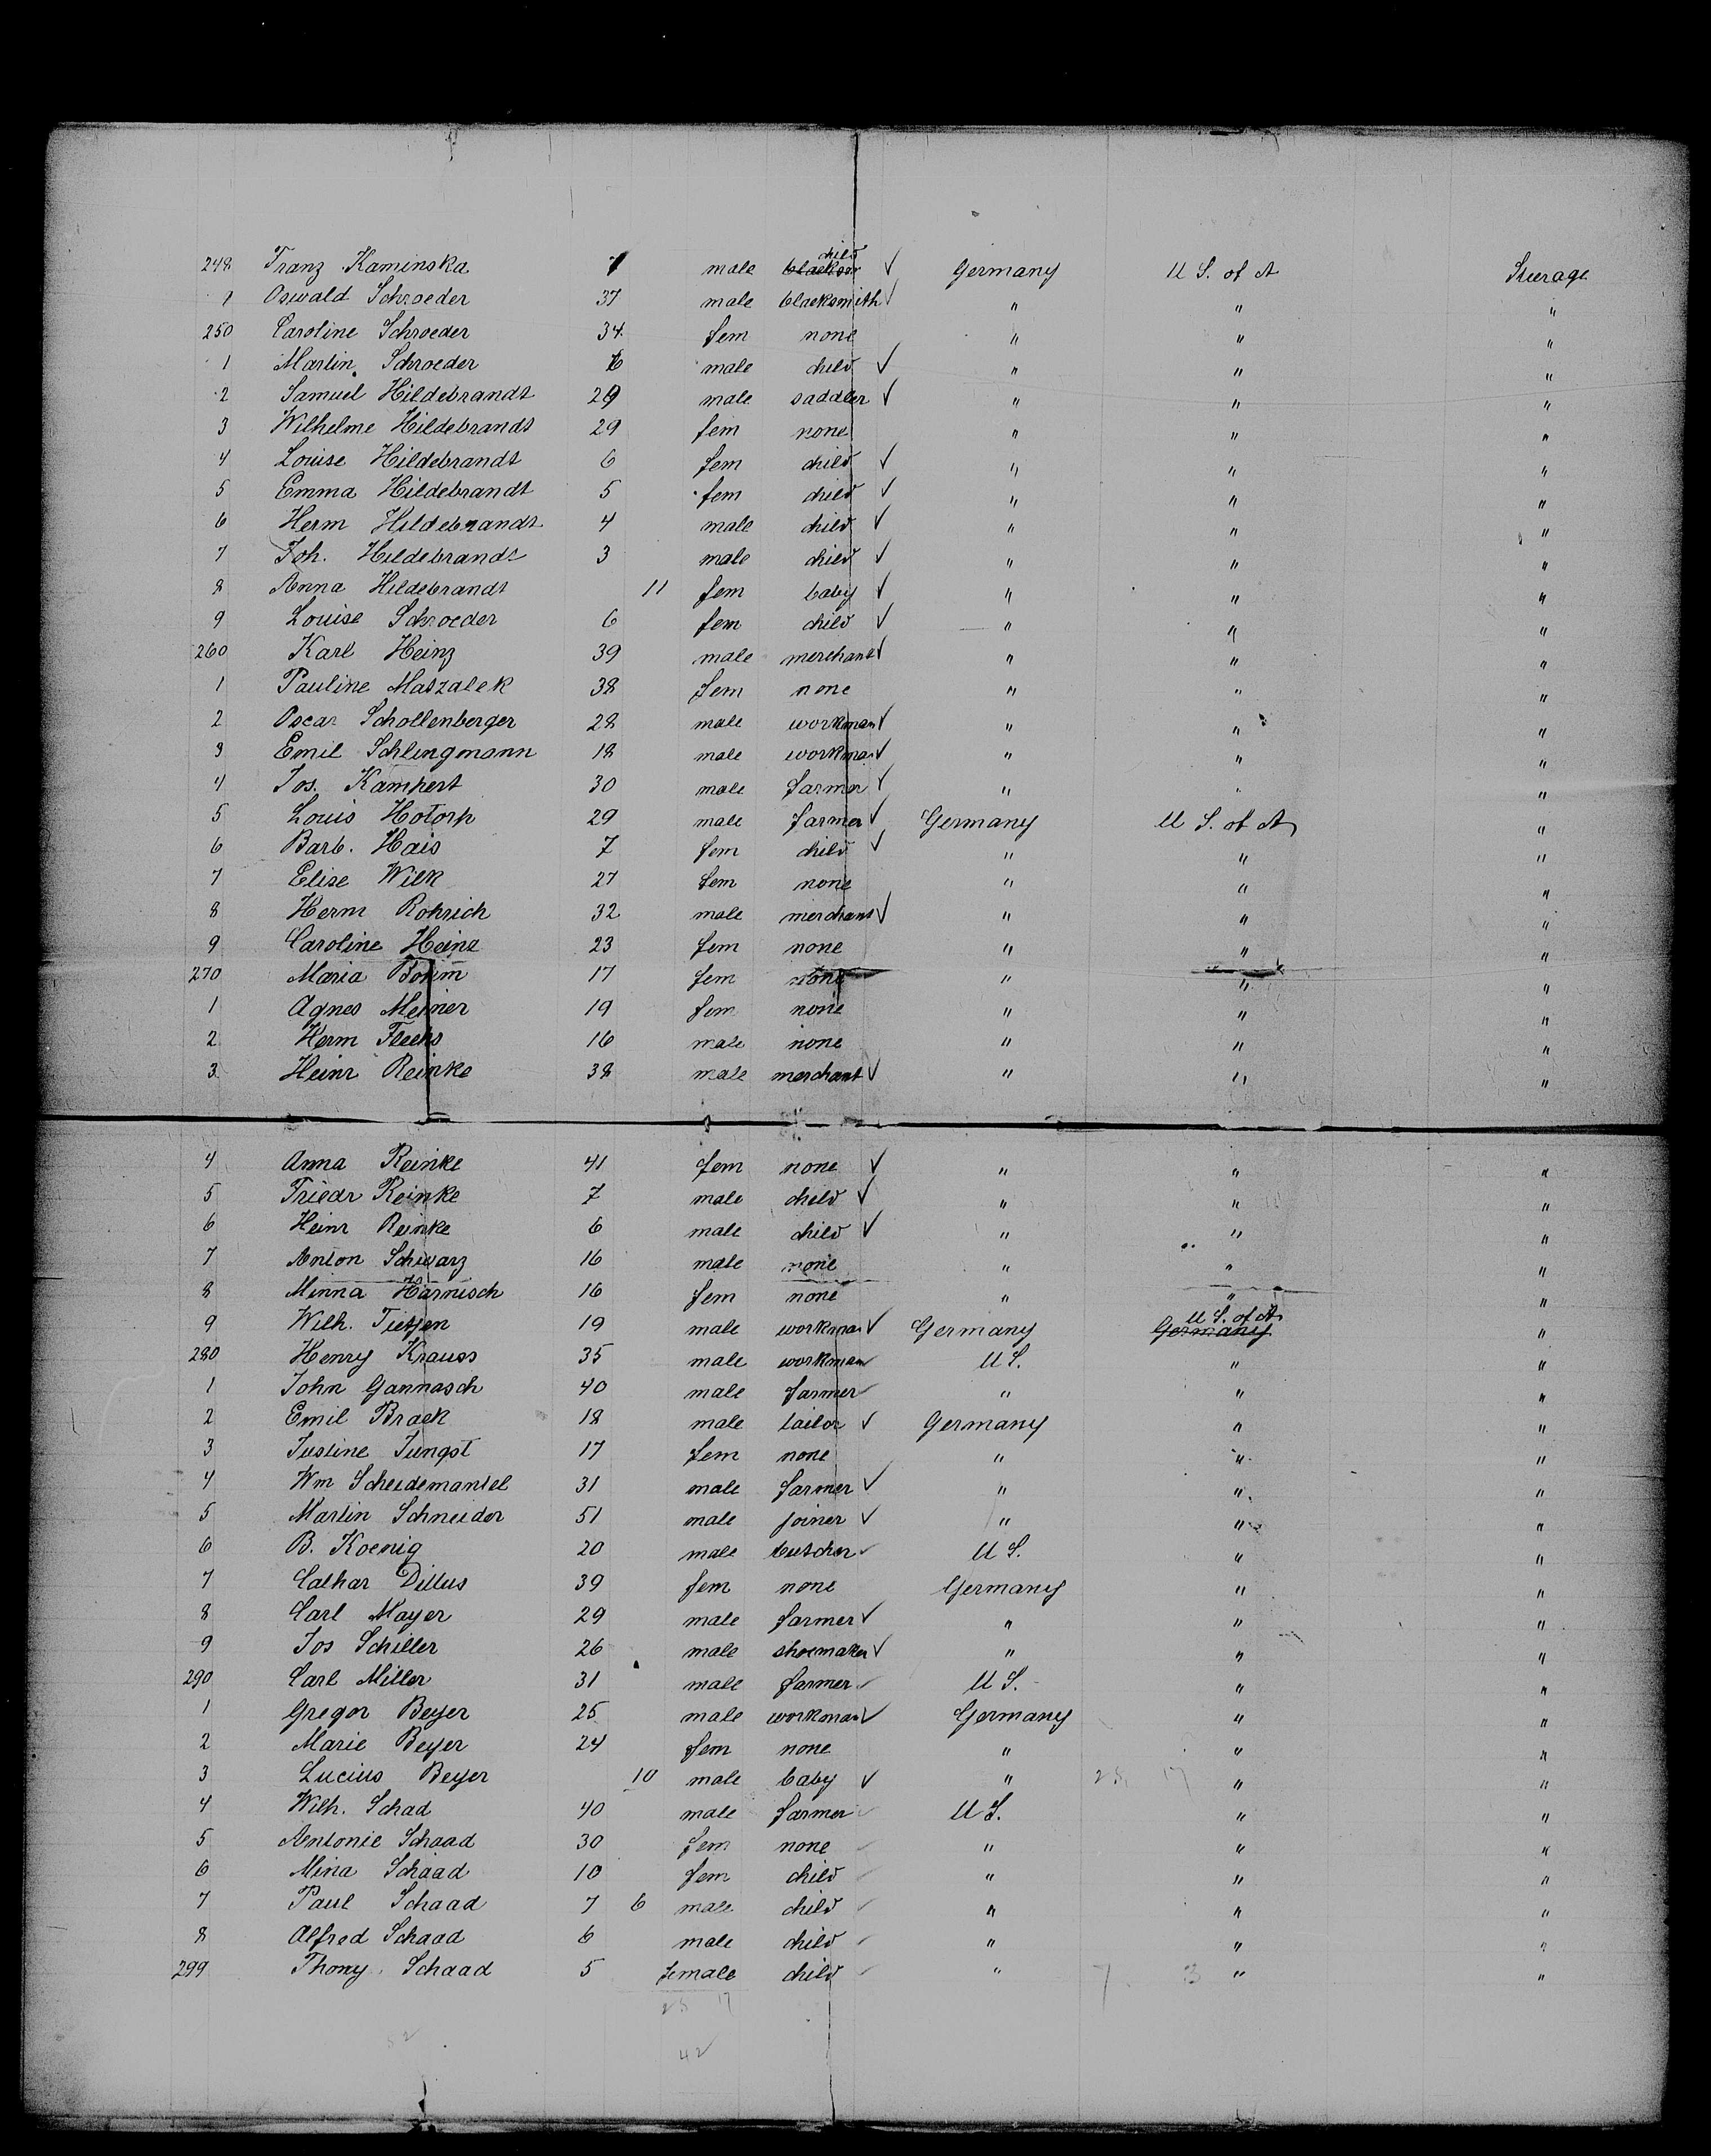 248 Franz Kaminska 1 male blacksm child ✓ Germany U S. of A Steerage
1 Oswald Schroeder 37 male blacksmith ✓ " " "
250 Caroline Schroeder 34 fem none " " "
1 Martin Schroeder 6 male child ✓ " " "
2 Samuel Hildebrandt 29 male saddler ✓ " " "
3 Wilhelme Hildebrandt 29 fem none " " "
4 Louise Hildebrandt 6 fem child ✓ " " "
5 Emma Hildebrandt 5 fem child ✓ " " "
6 Herm Hildebrandt 4 male child ✓ " " "
7 Joh. Hildebrandt 3 male child ✓ " " "
8 Anna Hildebrandt 11 fem baby ✓ " " "
9 Louise Schroeder 6 fem child ✓ " " "
260 Karl Heinz 39 male merchant ✓ " " "
1 Pauline Maszalek 38 fem none " " "
2 Oscar Schollenberger 28 male workman ✓ " " "
3 Emil Schlingmann 18 male workman ✓ " " "
4 Jos. Kampert 30 male farmer ✓ " " "
5 Louis Hotorp 29 male farmer ✓ Germany U S. of A "
6 Barb. Hais 7 fem child ✓ " " "
7 Elise Wilk 27 fem none " " "
8 Herm Rohrich 32 male merchant ✓ " " "
9 Caroline Heinz 23 fem none " " "
270 Maria Bohm 17 fem none " " "
1 Agnes Meiner 19 fem none " " "
2 Herm 16 male none " " "
3 Heinr Reinke 38 male merchant ✓ " " "
4 Anna Reinke 41 fem none ✓ " " "
5 Friedr Reinke 7 male child ✓ " " "
6 Heinr Reinke 6 male child ✓ " " "
7 Anton Schwarz 16 male none " " "
8 Minna Harnisch 16 fem none " " "
9 Wilh. Tietjen 19 male workman ✓ Germany Germany U S. of A "
280 Henry Krauss 35 male workman ✓ U S. " "
1 John Gannasch 40 male farmer ✓ " " "
2 Emil Brack 18 male tailor ✓ Germany " "
3 Justine Jungst 17 fem none " " "
4 Wm Scheidemantel 31 male farmer ✓ " " "
5 Martin Schneider 51 male joiner ✓ " " "
6 B. Koenig 20 male butcher ✓ U S. " "
7 Cathar Dillus 39 fem none Germany " "
8 Carl Mayer 29 male farmer ✓ " " "
9 Jos Schiller 26 male shoemaker ✓ " " "
290 Carl Miller 31 male farmer ✓ U S. " "
1 Gregor Beyer 25 male workman ✓ Germany " "
2 Marie Beyer 24 fem none " " "
3 Lucius Beyer 10 male baby ✓ " 25 17 " "
4 Wilh. Schad 40 male farmer ✓ U S. " "
5 Antonie Schaad 30 fem none ✓ " " "
6 Mina Schaad 10 fem child ✓ " " "
7 Paul Schaad 7 6 male child ✓ " " "
8 Alfred Schaad 6 male child ✓ " " "
299 Thony Schaad 5 female child ✓ " 7 3 " "
25 17
52 42